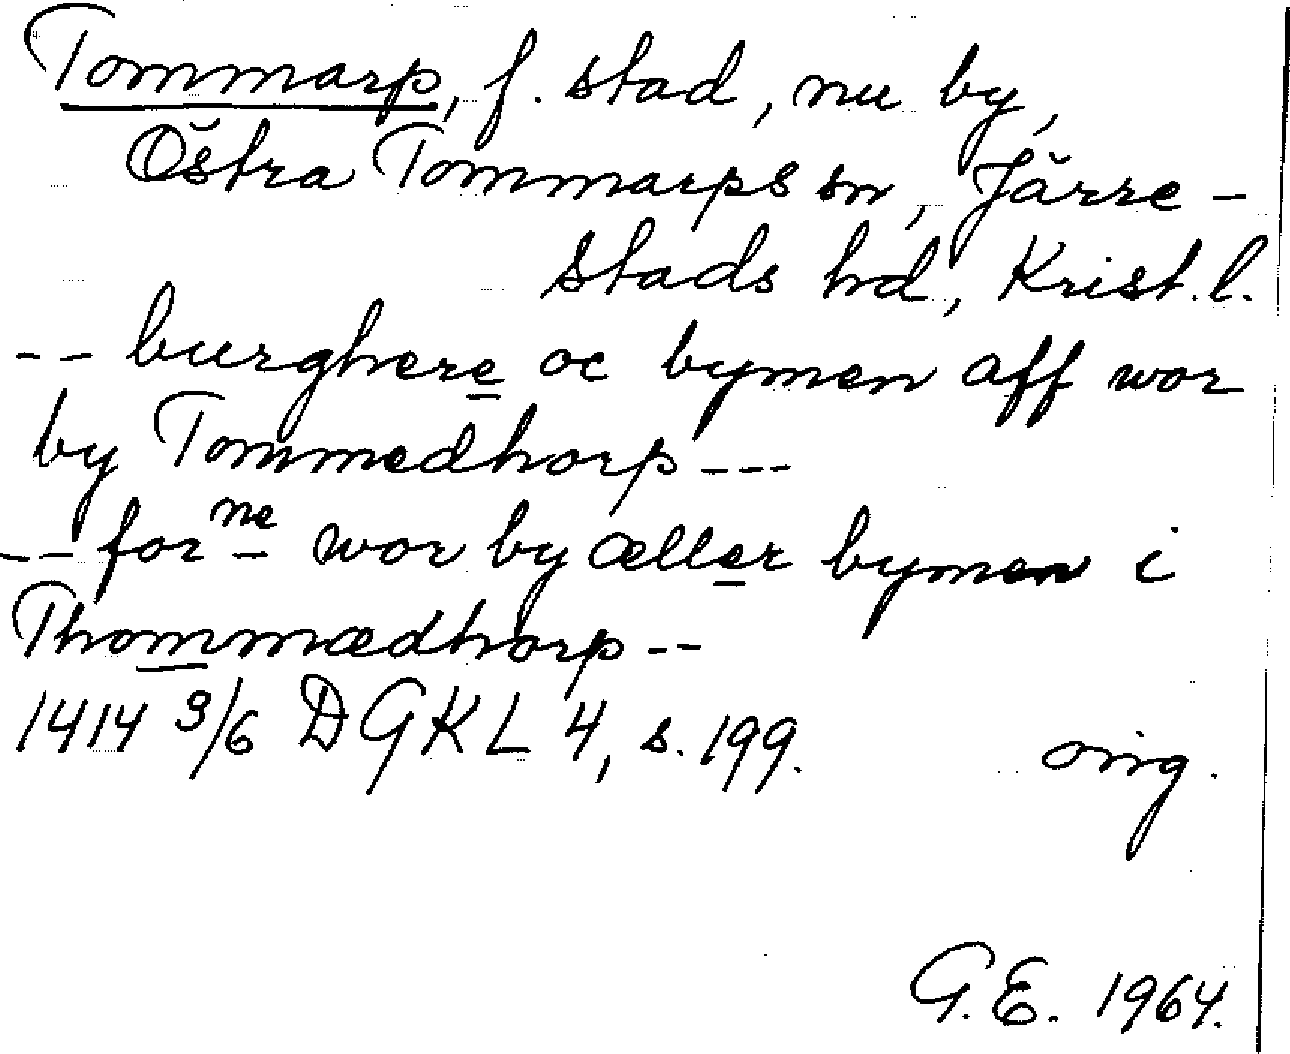 Tommarp, f. stad, nu by,
Östra Tommarps sn, Järre-
stads hd, Krist. l.
-- burghere oc bymen aff wor
by Tommedhorp ---
-- forne wor by æller bymen i
Thommædhorp --
1414 3/6 DGKL 4, s. 199. orig.
G.E. 1964.